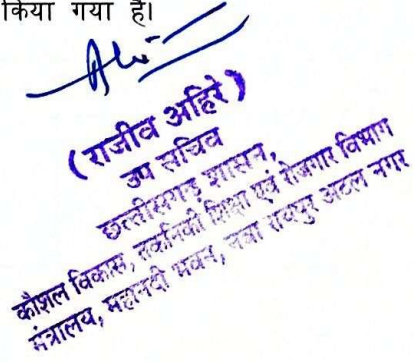 किया गया है।
(राजीव अहिरे)
उप सचिव
छत्तीसगढ़ शासन,
कौशल विकास, तकनिकी शिक्षा एवं रोजगार विभाग
मंत्रालय, महानदी भवन, नवा रायपुर अटल नगर